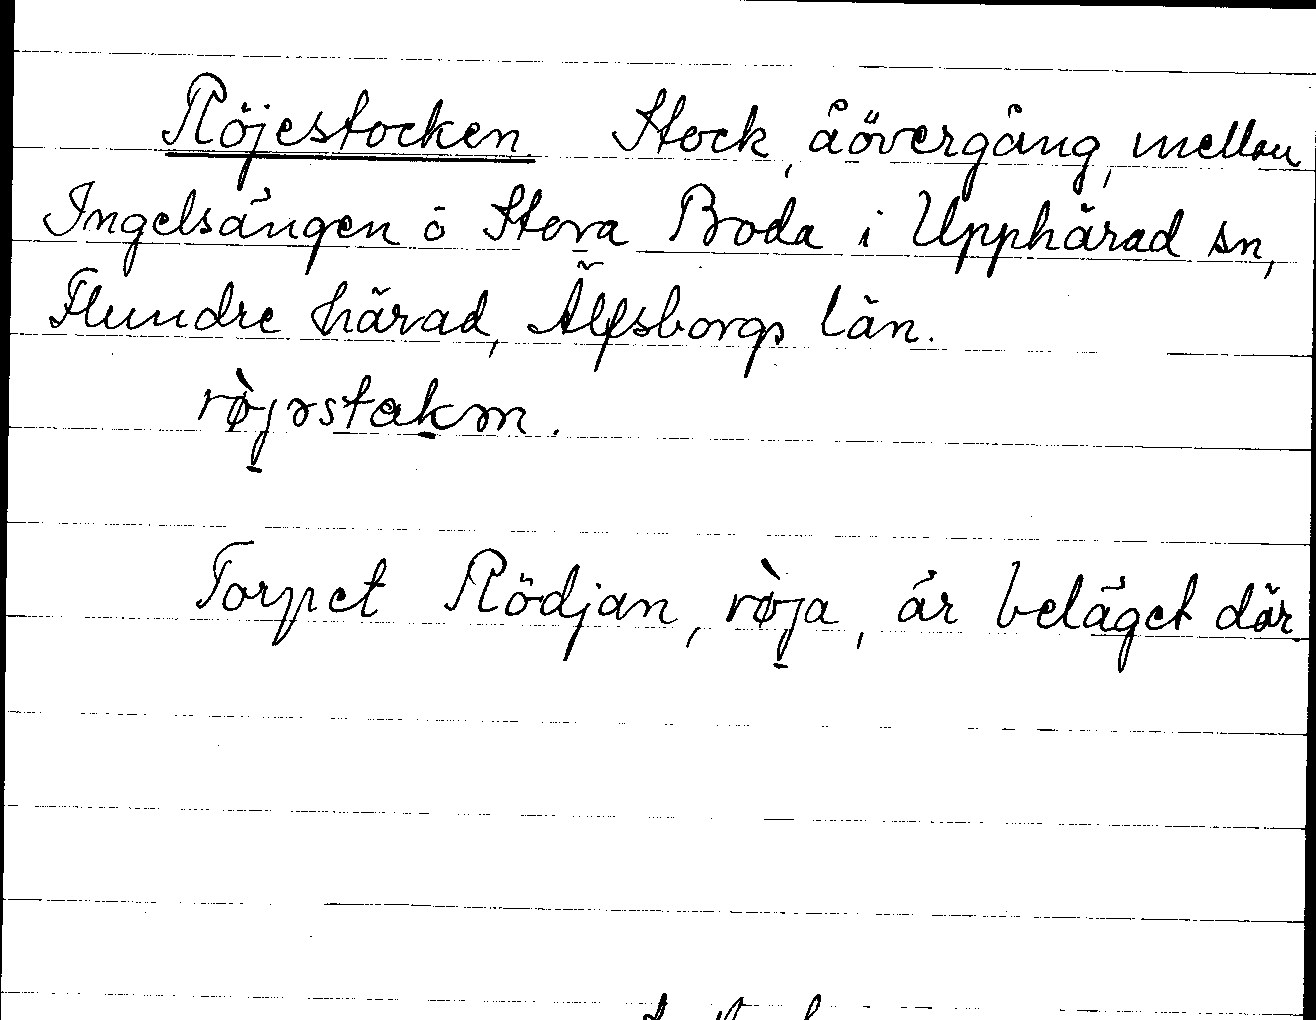 Röjestocken Stock, åövergång, mellan
Ingelsängen o Stora Boda i Upphärad sn,
Flundre härad, Älfsborgs län.
rø̀jəstakən.
Torpet Rödjan, rø̀ja, är beläget där.